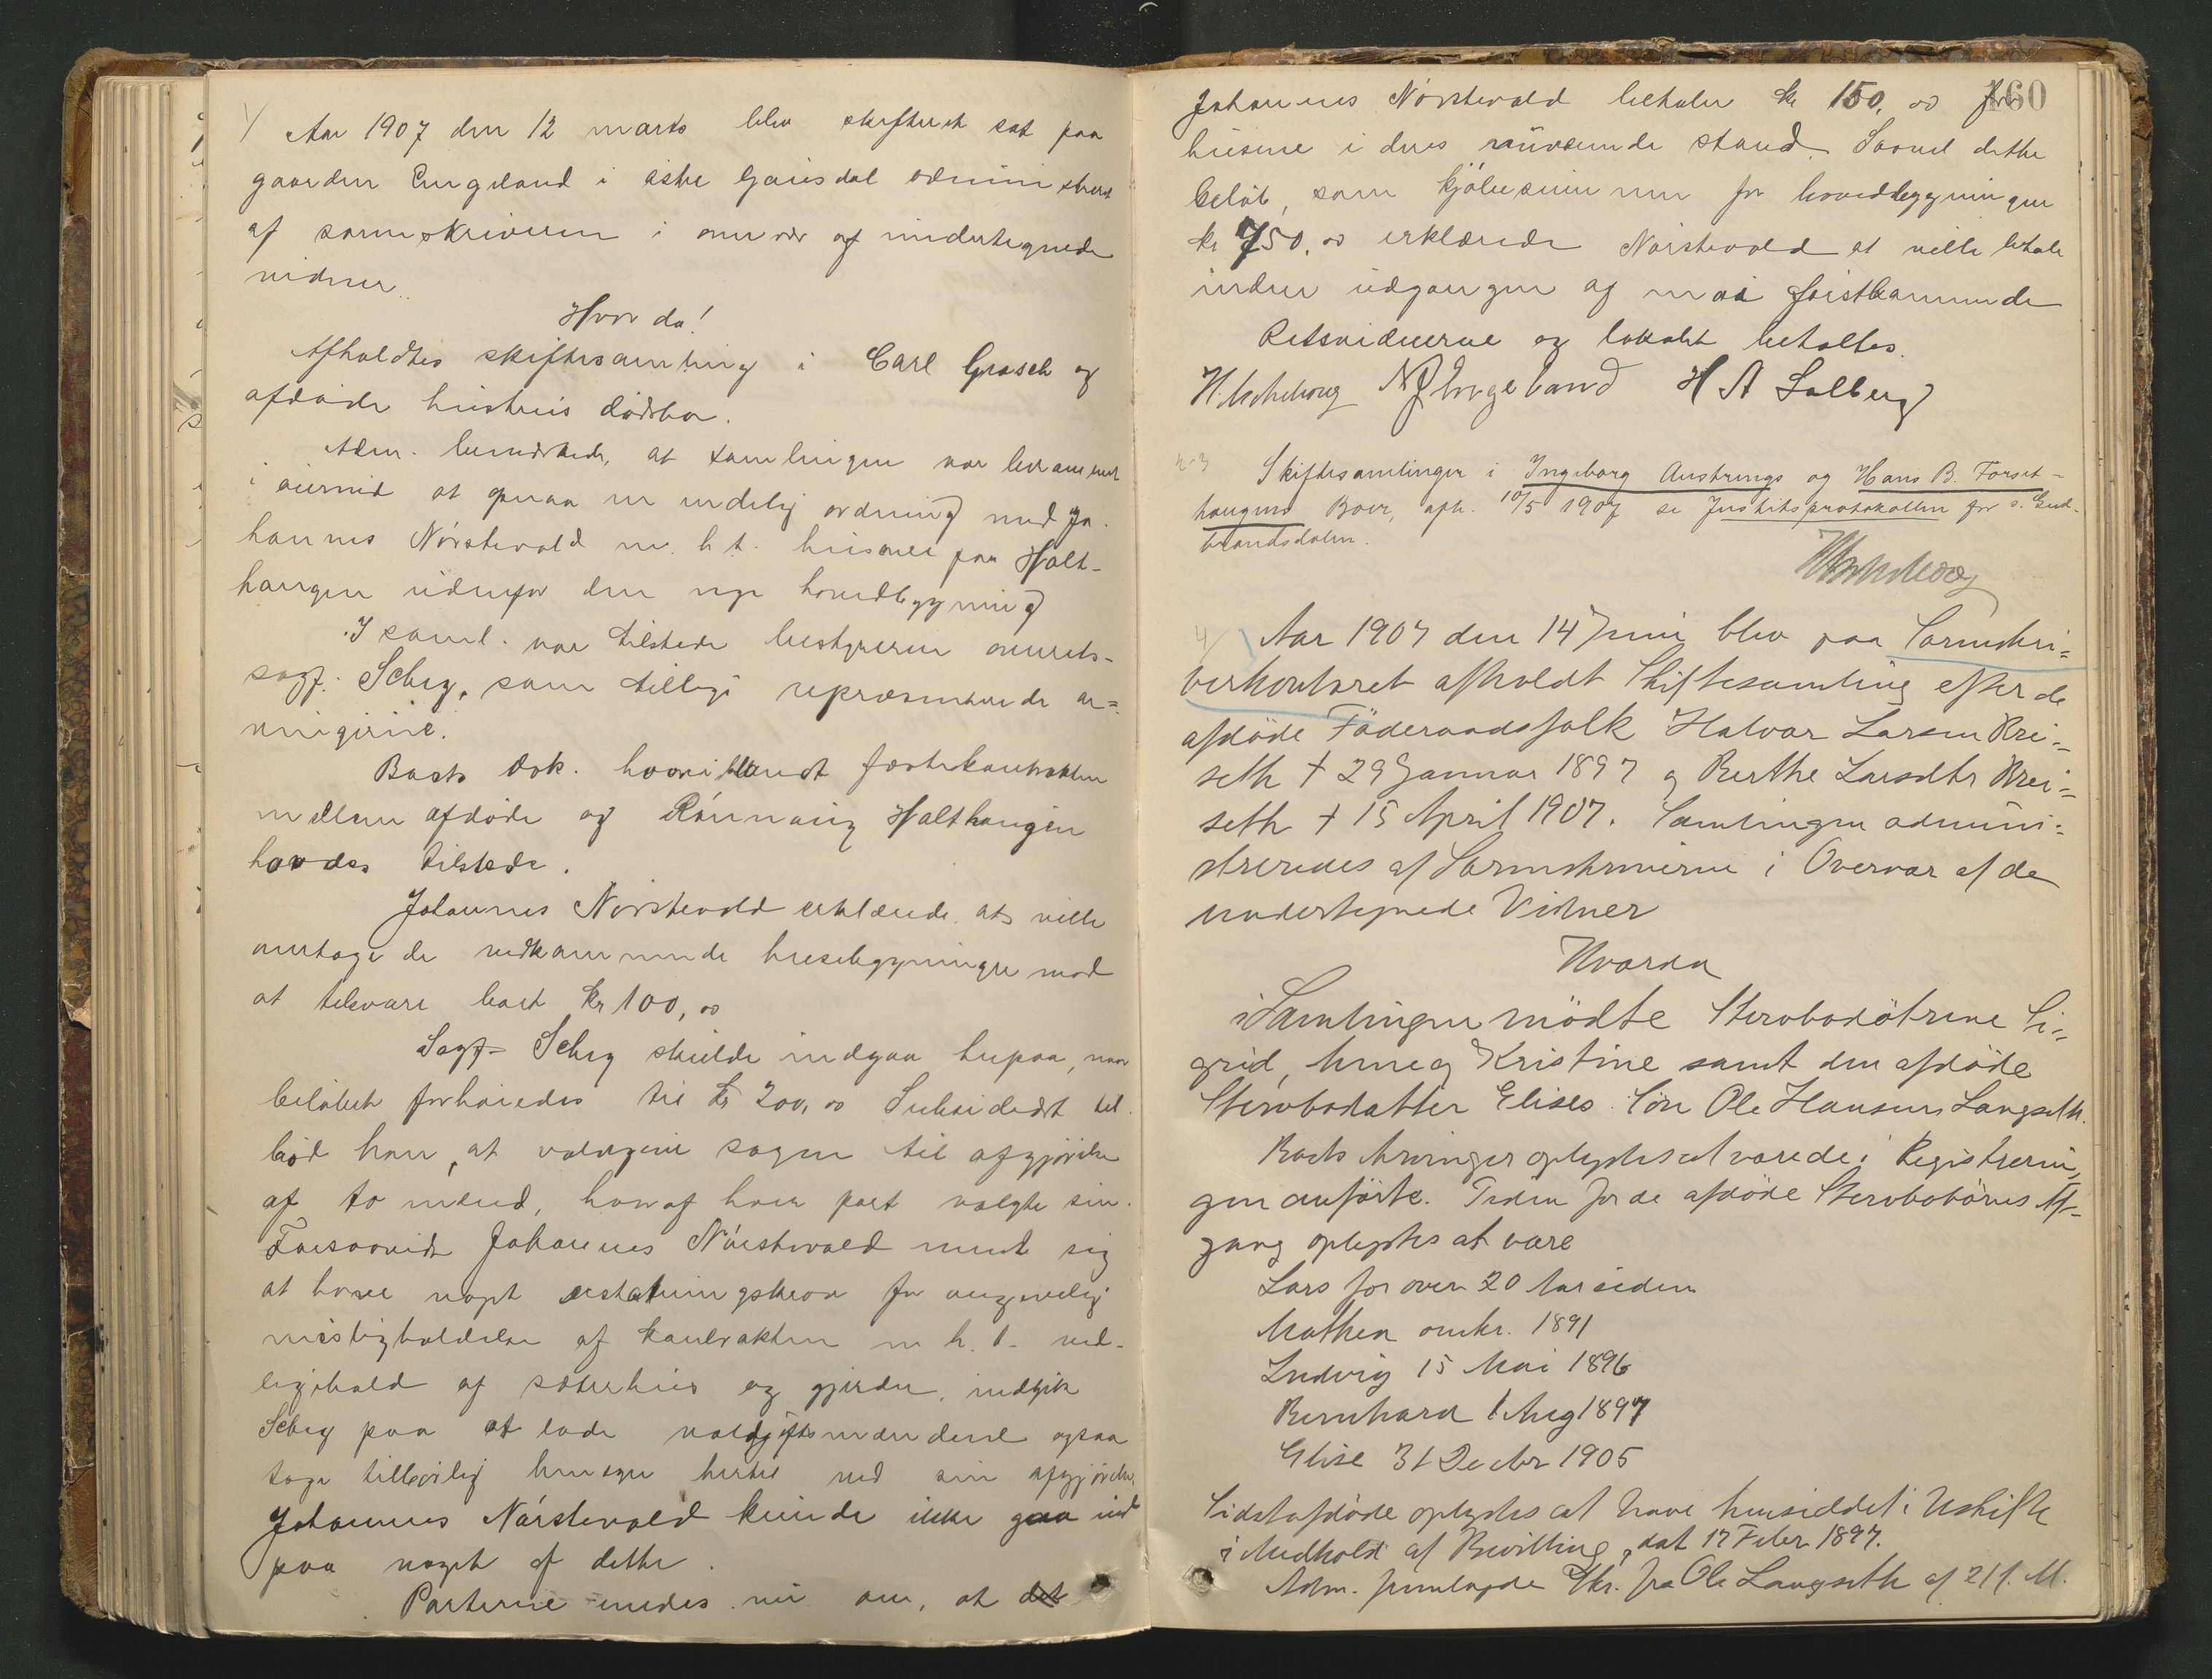 1/ Aar 1907 den 12 marts blev skifteret sat paa
gaarden Engeland i østre Gausdal administreret
af sorenskriveren i overvær af undertegnede
vidner.
Hvorda!
Afholdtes skiftesamling i Carl Grosch og
afdøde hustrus dødsbo.
Adm. bemærkede, at samlingen var berammet
i øiemed at opnaa en endelig ordning med Jo-
hannes Nörstevold m. h. t. husene paa Holt-
haugen udenfor den nye hovedbygning
I saml. var tilstede bestyreren overrets-
sagf. Scheg, som tillige repræsenterede ar-
vingerne.
Boets dok. hvoriblandt festekontrakten
mellem afdøde og Rönnaug Holthaugen
havdes tilstede.
Johannes Nörstevold erklærede at ville
overtage de vedkommende husebygninger mod
at tilsvare boet kr 100,00
Sagf. Scheg skulde indgaa herpaa, naar
beløbet forhøiedes til kr 200,00 Subsidiært til-
bød han, at voldgive sagen til afgjørelse
af to mænd, hvoraf hver part valgte sin.
Forsaavidt Johannes Nörstevold mente sig
at have noget erstatningskrav for angivelig
misligholdelse af kontrakten m. h. t. ved-
ligehold af sæterhus og gjerder, indgik
Scheg paa at lade voldgiftsmændene ogsaa
tage tilbørlig hensyn hertil ved sin afgjørelse.
Johannes Nörstevold kunde ikke gaa ind
paa noget af dette.
Parterne enedes nu om, at det
160
Johannes Nörstevold betaler kr 150,00 for
husene i deres nuværende stand. Saavel dette
beløb, som kjøbesummen for hovedbygningen
kr 750,00 erklærede Nörstevold at ville betale
inden udgangen af mai førstkommende
Retsvidnerne og lokalet betaltes.
N J Engeland H A Solberg
2-3 Skiftesamlinger i Ingeborg Austrengs og Hans B. Forset-
haugens Boer, afh. 10/5 1907 se Justitsprotokollen for s. Gud-
brandsdalen.
4/ Aar 1907 den 14 Juni blev paa Sorenskri-
verkontoret afholdt Skiftesamling efter de
afdöde Föderaadsfolk Halvor Larsen Brei-
seth † 29 Januar 1897 og Berthe Larsdtr Brei-
seth † 15 April 1907. Samlingen admini-
streredes af Sorenskriveren i Overvær af de
undertegnede Vidner
Hvorda
i Samlingen mödte Stervbodötrene Si-
grid, Anne og Kristine samt den afdöde
Stervbodatter Elises Sön Ole Hansen Langseth.
Boets Arvinger oplystes at være de i Registrerin-
gen anförte. Tiden for de afdöde Stervbobörns Af-
gang oplystes at være
Lars for over 20 Aar siden
Mathea omkr. 1891
Ludvig 15 Mai 1896
Bernhard 1 Aug 1897
Elise 31 Decbr 1905
Sidstafdöde oplystes at have hensiddet i Uskifte
i Medhold af Bevilling, dat 17 Febr 1897.
Adm. fremlagde Skr. fra Ole Langseth af 21 f. M.